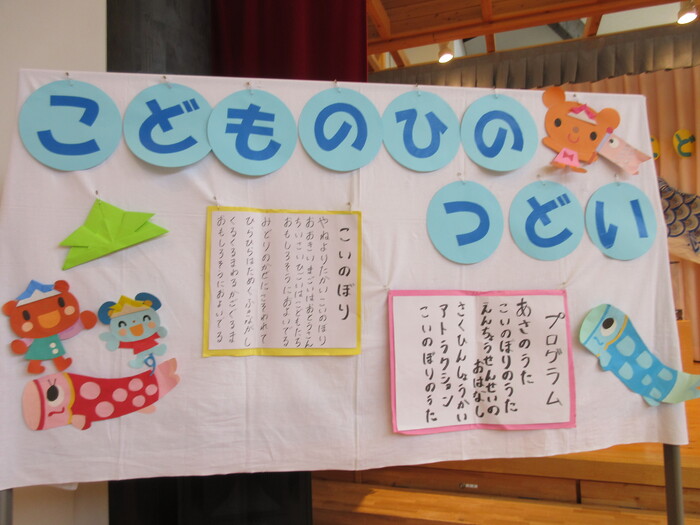 こどものひの
つどい
こいのぼり
やねよりたかいこいのぼり
おおきいまごいはおとうさん
ちいさいひごいはこどもたち
おもしろそうにおよいでる
みどりのかぜにさそわれて
ひらひらはためくふきながし
くるくるまわるかざぐるま
おもしろそうにおよいでる
プログラム
あさのうた
こいのぼりのうた
えんちょうせんせいの
おはなし
さくひんしょうかい
アトラクション
こいのぼりのうた
と